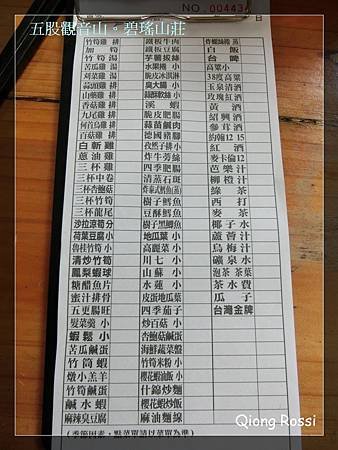 五股觀音山。碧瑤山莊
NO. 00443
竹筍雞 排
加 筍
竹筍 湯
苦瓜雞 湯
刈菜雞 湯
蒜頭雞 排
山藥雞 排
香菇雞 排
九尾雞 排
何首烏雞 排
百菇雞 排
白斬雞
蔥油雞
三杯雞
三杯中卷
三杯杏鮑菇
三杯竹筍
三杯龍尾
沙拉涼筍分
荷葉豆腐小
魯桂竹筍 小
清炒竹筍
鳳梨蝦球
糖醋魚片
蜜汁排骨
五更腸旺
髮菜羹 小
蝦鬆 小
苦瓜鹹蛋
竹筒蝦
燉小羔羊
竹筍鹹蛋
鹹水蝦
麻辣臭豆腐
鐵板牛肉
鐵板豆腐
芋薯拔絲
水果捲 小
脆皮冰淇淋
臭大腸 小
蒜酥軟絲 小
溪 蝦
脆皮肥腸
蒜苗鹹肉
德國豬腳
孜然子排 小
炸牛蒡絲
四季肥腸
清蒸石斑
樹子鱈魚
豆酥鱈魚
樹子黑鯛魚
地瓜葉 小
高麗菜 小
川七 小
山蘇 小
水蓮 小
皮蛋地瓜葉
四季茄子
炒百菇 小
杏鮑菇鹹蛋
海鮮蔬菜盤
竹筍米粉 小
櫻花蝦油飯 小
什錦炒麵
櫻花蝦炒飯
麻油麵線
炸饅頭捲 蒸
白 飯
台 啤
高粱小
38度高粱
玉泉清酒
玫瑰紅酒
黃 酒
紹興酒
參茸酒
約翰12 15
紅 酒
麥卡倫12
芭樂汁
柳橙汁
綠 茶
西 打
麥 茶
椰子水
蘆薈汁
烏梅汁
礦泉水
泡茶 茶葉
茶水費
瓜 子
台灣金牌
(季節因素，點菜單請以菜單為準)
Qiong Rossi